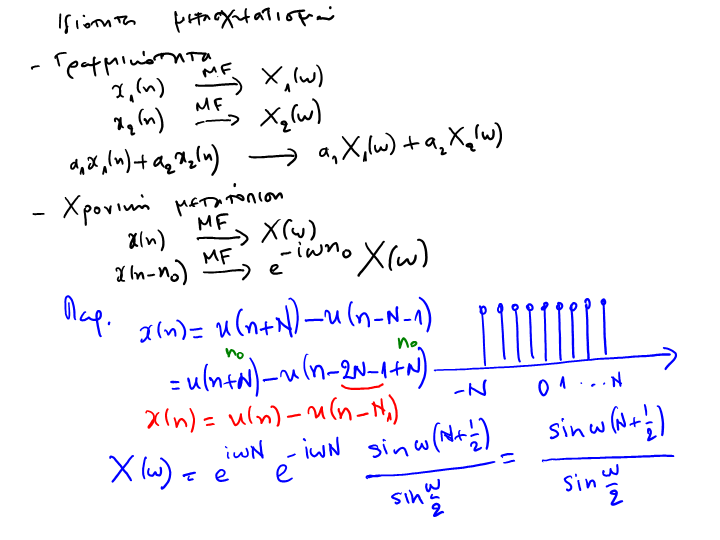 Ιδιότητα μετασχηματισμού
- Γραμμικότητα
x₁(n) MF→ X₁(ω)
x₂(n) MF→ X₂(ω)
a₁x₁(n)+a₂x₂(n) → a₁X₁(ω)+a₂X₂(ω)
- Χρονική μετατόπιση
x(n) MF→ X(ω)
x(n-n₀) MF→ e^{-iωn₀} X(ω)
Παρ. x(n)= u(n+N)-u(n-N-1)
n₀ n₀
= u(n+N)-u(n-2N-1+N)
-N 0 1 ... N
x(n) = u(n)-u(n-N₁)
X(ω) = e^{iωN} e^{-iωN} sin ω(N+1/2) / sin ω/2 = sin ω(N+1/2) / sin ω/2